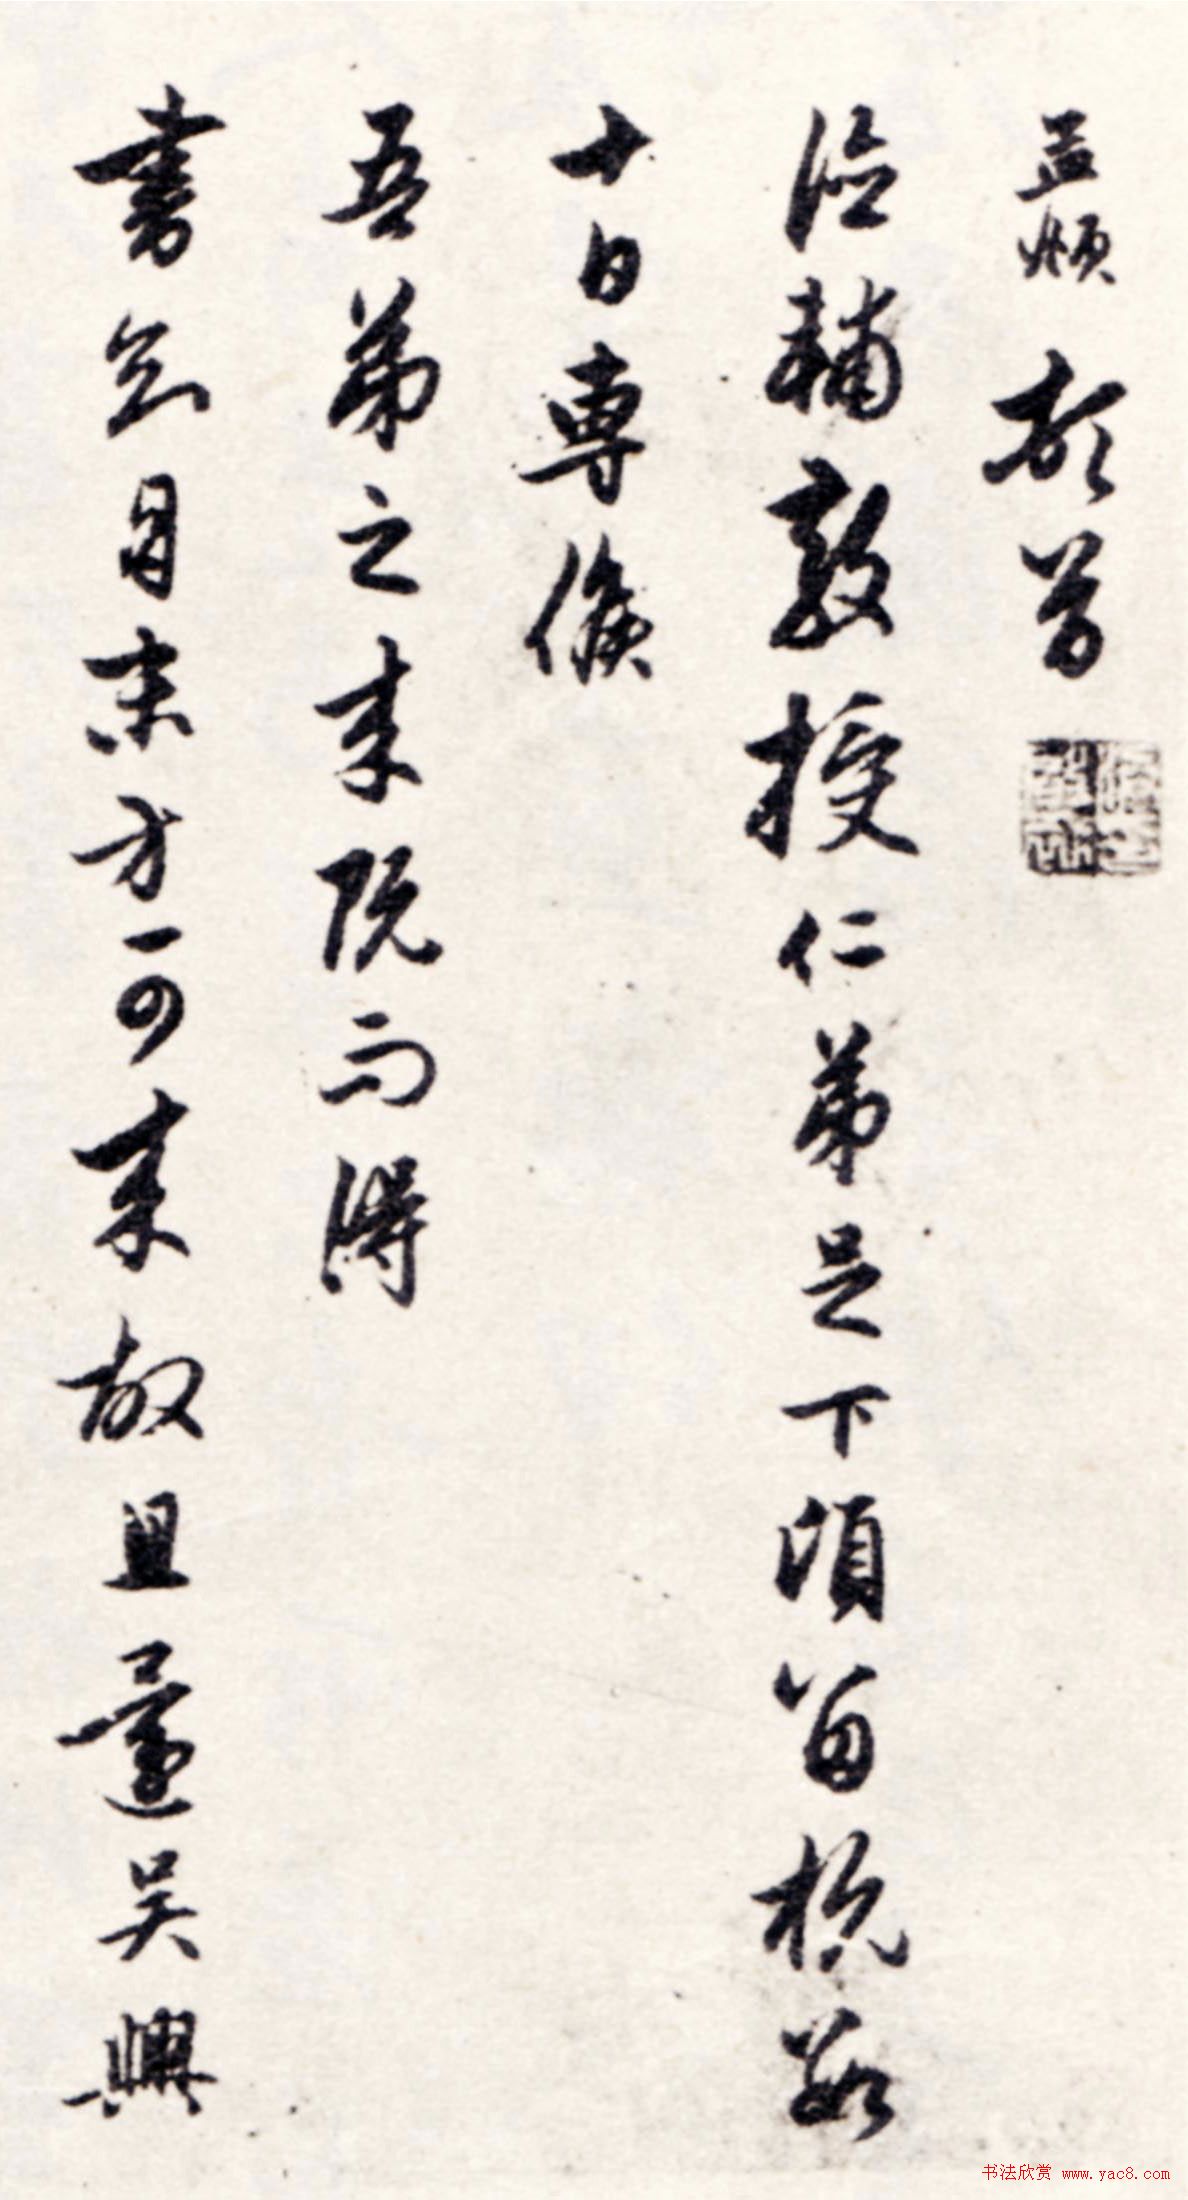 孟頫頓首
德輔教授仁弟足下頃留杭數
十日專候
吾弟之來既而得
書云月末方可來故且還吳興
书法欣赏 www.yac8.com